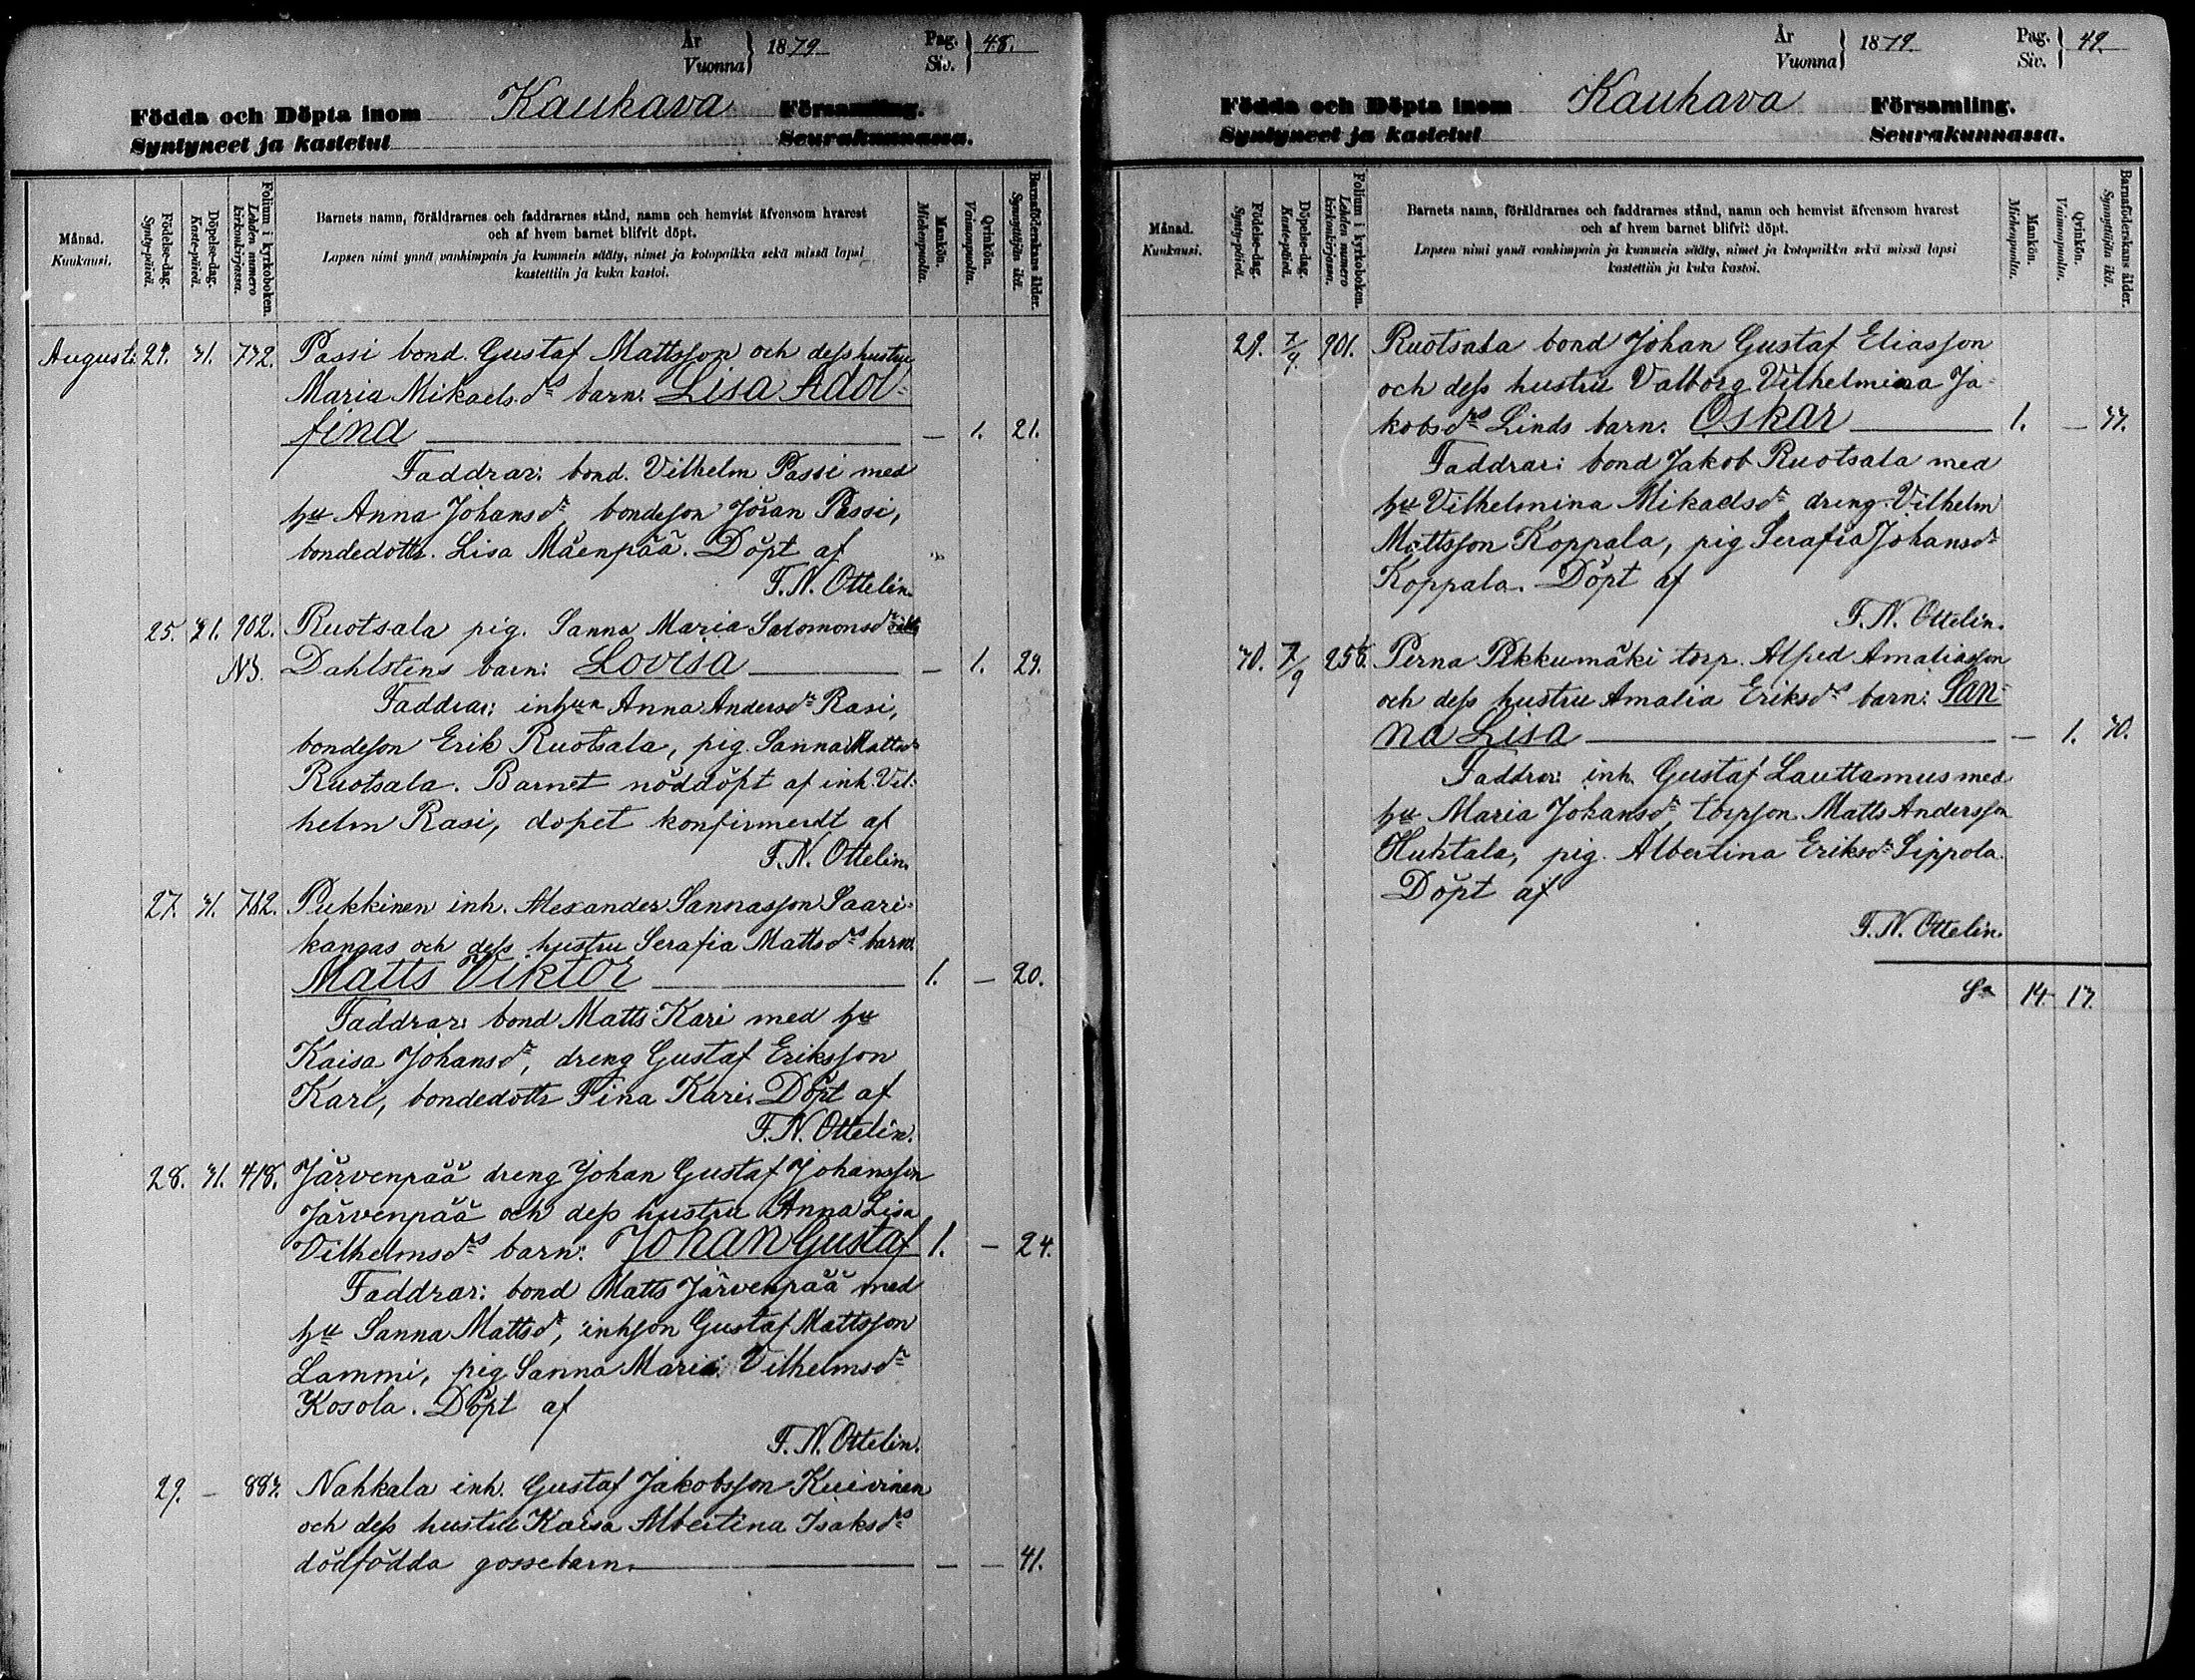 År
Vuonna } 1879
Pag.
Siv. } 48.
Födda och Döpta inom Kauhava Församling.
Syntyneet ja kastetut Seurakunnassa.
Månad.
Kuukausi.
Födelse-dag.
Synty-päivä.
Döpelse-dag.
Kaste-päivä.
Folium i kyrkoboken.
Lehden numero
kirkonkirjassa.
Barnets namn, föräldrarnes och faddrarnes stånd, namn och hemvist äfvensom hvarest
och af hvem barnet blifvit döpt.
Lapsen nimi ynnä vanhimpain ja kummein sääty, nimet ja kotopaikka sekä missä lapsi
kastettiin ja kuka kastoi.
Mankön.
Miehenpuolta.
Qvinkön.
Vaimonpuolta.
Barnaföderskans ålder.
Synnyttäjän ikä.
Augusti 31. 772. Passi bond. Gustaf Mattsson och dess hustru
Maria Mikaelsdrs barn: Lisa Adol-
fina — 1. 21.
Faddrar: bond. Vilhelm Passi med
hu Anna Johansdr, bondeson Jöran Passi,
bondedottr. Lisa Mäenpää. Döpt af
F. N. Ottelin.
25. 31. 902. Ruotsala pig. Sanna Maria Salomonsdr
NB. Dahlstens barn: Lovisa — 1. 29.
Faddrar: Anna Andersdr Rasi,
bondeson Erik Ruotsala, pig. Sanna Mattsdr
Ruotsala. Barnet nöddöpt af inh. Vil-
helm Rasi, dopet konfirmerdt af
F. N. Ottelin.
27. 31. 782. Pukkinen inh. Alexander Sannasson Saari-
kangas och dess hustru Serafia Mattsdrs barn:
Matts Viktor 1. — 20.
Faddrar: bond Matts Kari med hu
Kaisa Johansdr, dreng Gustaf Eriksson
Kari, bondedottr Fina Kari. Döpt af
F. N. Ottelin.
28. 31. 418. Järvenpää dreng Johan Gustaf Johansson
Järvenpää och dess hustru Anna Lisa
Vilhelmsdrs barn: Johan Gustaf 1. — 24.
Faddrar: bond Matts Järvenpää med
hu Sanna Mattsdr, inhson Gustaf Mattsson
Lammi, pig Sanna Maria Vilhelmsdr
Kosola. Döpt af
F. N. Ottelin.
29. — 883. Nahkala inh. Gustaf Jakobsson Kuivinen
och dess hustru Kaisa Albertina Isaksdrs
dödfödda gossebarn. — — 41.
År
Vuonna } 1879.
Pag.
Siv. } 49.
Födda och Döpta inom Kauhava Församling.
Syntyneet ja kastetut Seurakunnassa.
Månad.
Kuukausi.
Födelse-dag.
Synty-päivä.
Döpelse-dag.
Kaste-päivä.
Folium i kyrkoboken.
Lehden numero
kirkonkirjassa.
Barnets namn, föräldrarnes och faddrarnes stånd, namn och hemvist äfvensom hvarest
och af hvem barnet blifvit döpt.
Lapsen nimi ynnä vanhimpain ja kummein sääty, nimet ja kotopaikka sekä missä lapsi
kastettiin ja kuka kastoi.
Mankön.
Miehenpuolta.
Qvinkön.
Vaimonpuolta.
Barnaföderskans ålder.
Synnyttäjän ikä.
29. 7/9. 901. Ruotsala bond Johan Gustaf Eliasson
och dess hustru Valborg Vilhelmina Ja-
kobsdrs Linds barn: Oskar 1. — 33.
Faddrar: bond Jakob Ruotsala med
hu Vilhelmina Mikaelsdr, dreng Vilhelm
Mattsson Koppala, pig Serafia Johansdr
Koppala. Döpt af
F. N. Ottelin.
30. 7/9 256. Perna Pikkumäki torp. Alfred Amaliasson
och dess hustru Amalia Eriksdrs barn: San-
na Lisa — 1. 30.
Faddrar: inh. Gustaf Lauttamus med
hu Maria Johansdr torpson Matts Andersson
Huhtala, pig. Albertina Eriksdr Sippola.
Döpt af
F. N. Ottelin.
Sa 14 13.